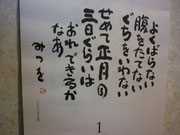 よくばらない
腹をたてない
ぐちをいわない
せめて正月の
三日ぐらいは
おれできるか
なあ
みつを
1